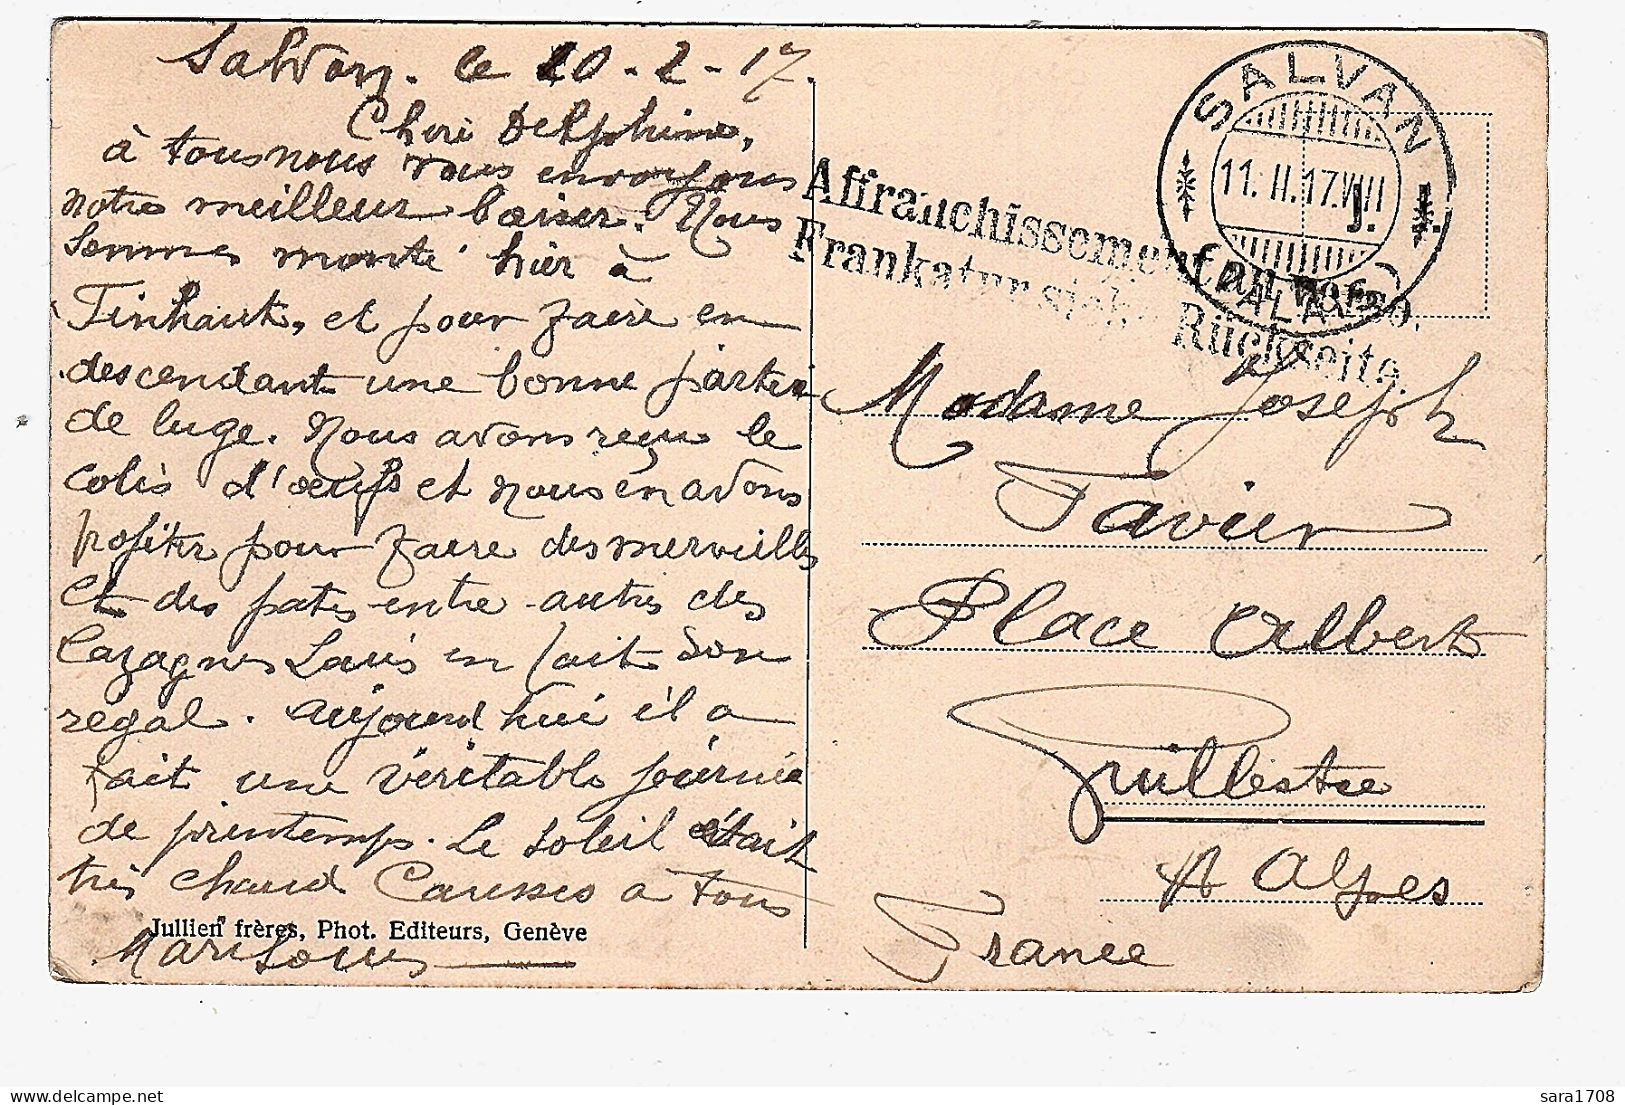 Salvan. le 10-2-17.
Cheri Delphine,
à tous nous vous envoyons
notre meilleur baiser. Nous
sommes monté hier à
Finhaut, et pour faire en
descendant une bonne partie
de luge. Nous avons reçu le
colis d'œufs et nous en avons
profiter pour faire des merveilles
et des pates entre autres des
Lazagnes Louis en fait son
regal. Aujourd'hui il a
fait une véritable journée
de printemps. Le soleil était
très chaud Caresses à tous
Jullien frères, Phot. Editeurs, Genève
Mari Louis
SALVAN
11.II.17.VIII
VALAIS
Affranchissement au verso.
Frankatur siehe Rückseite.
Madame Joseph
Favier
Place Albert
Guillestre
H Alpes
France
sara1708